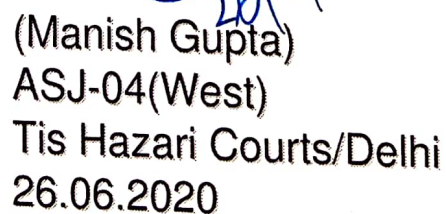 (Manish Gupta)
ASJ-04(West)
Tis Hazari Courts/Delhi
26.06.2020